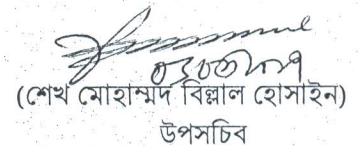 (শেখ মোহাম্মদ বিল্লাল হোসাইন)
উপসচিব